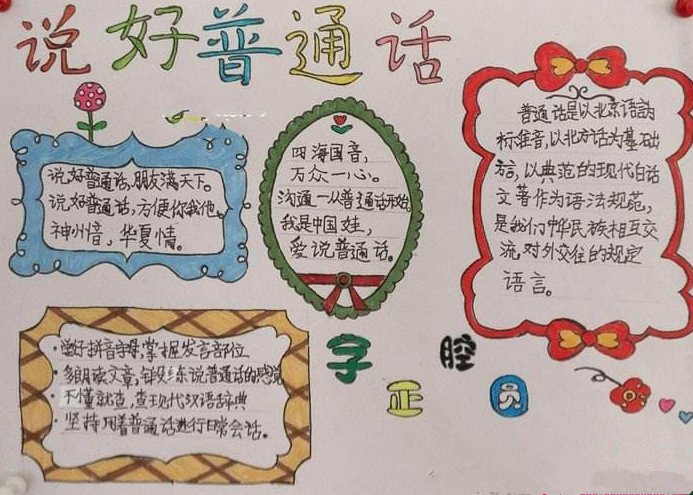 说好普通话
说好普通话,朋友满天下。
说好普通话,方便你我他。
神州音,华夏情。
四海国音,
万众一心。
沟通—从普通话开始
我是中国娃,
爱说普通话。
普通话是以北京语音为
标准音,以北方话为基础
方言,以典范的现代白话
文著作为语法规范,
是我们中华民族相互交
流对外交往的规定
语言。
·学好拼音字母,掌握发言部位
·多朗读文章,锻炼说普通话的感觉
·不懂就查,查现代汉语辞典
·坚持用着普通话进行日常会话。
字正腔圆